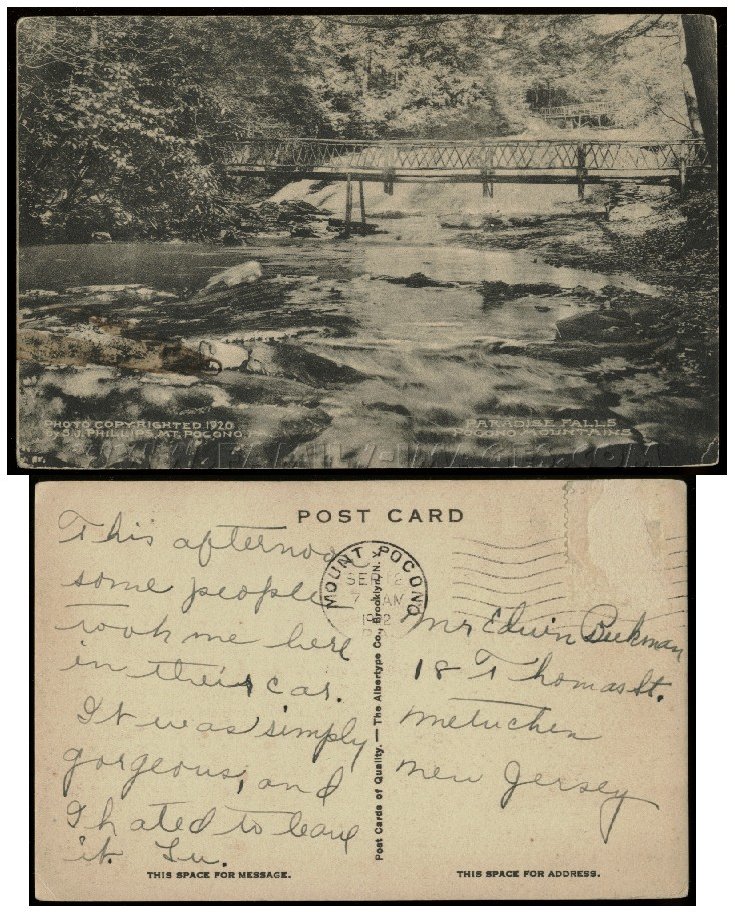 PHOTO COPYRIGHTED 1920
BY S.J. PHILLIPS, MT. POCONO
PARADISE FALLS
POCONO MOUNTAINS
POST CARD
This afternoon
some people
took me here
in their car.
It was simply
gorgeous, and
I hated to leave
it. Lu.
THIS SPACE FOR MESSAGE.
MOUNT POCONO
SEP
7 AM
Post Cards of Quality. — The Albertype Co., Brooklyn, N.Y.
Mr Edwin Beekman
18 Thomas St.
Metuchen
New Jersey
THIS SPACE FOR ADDRESS.